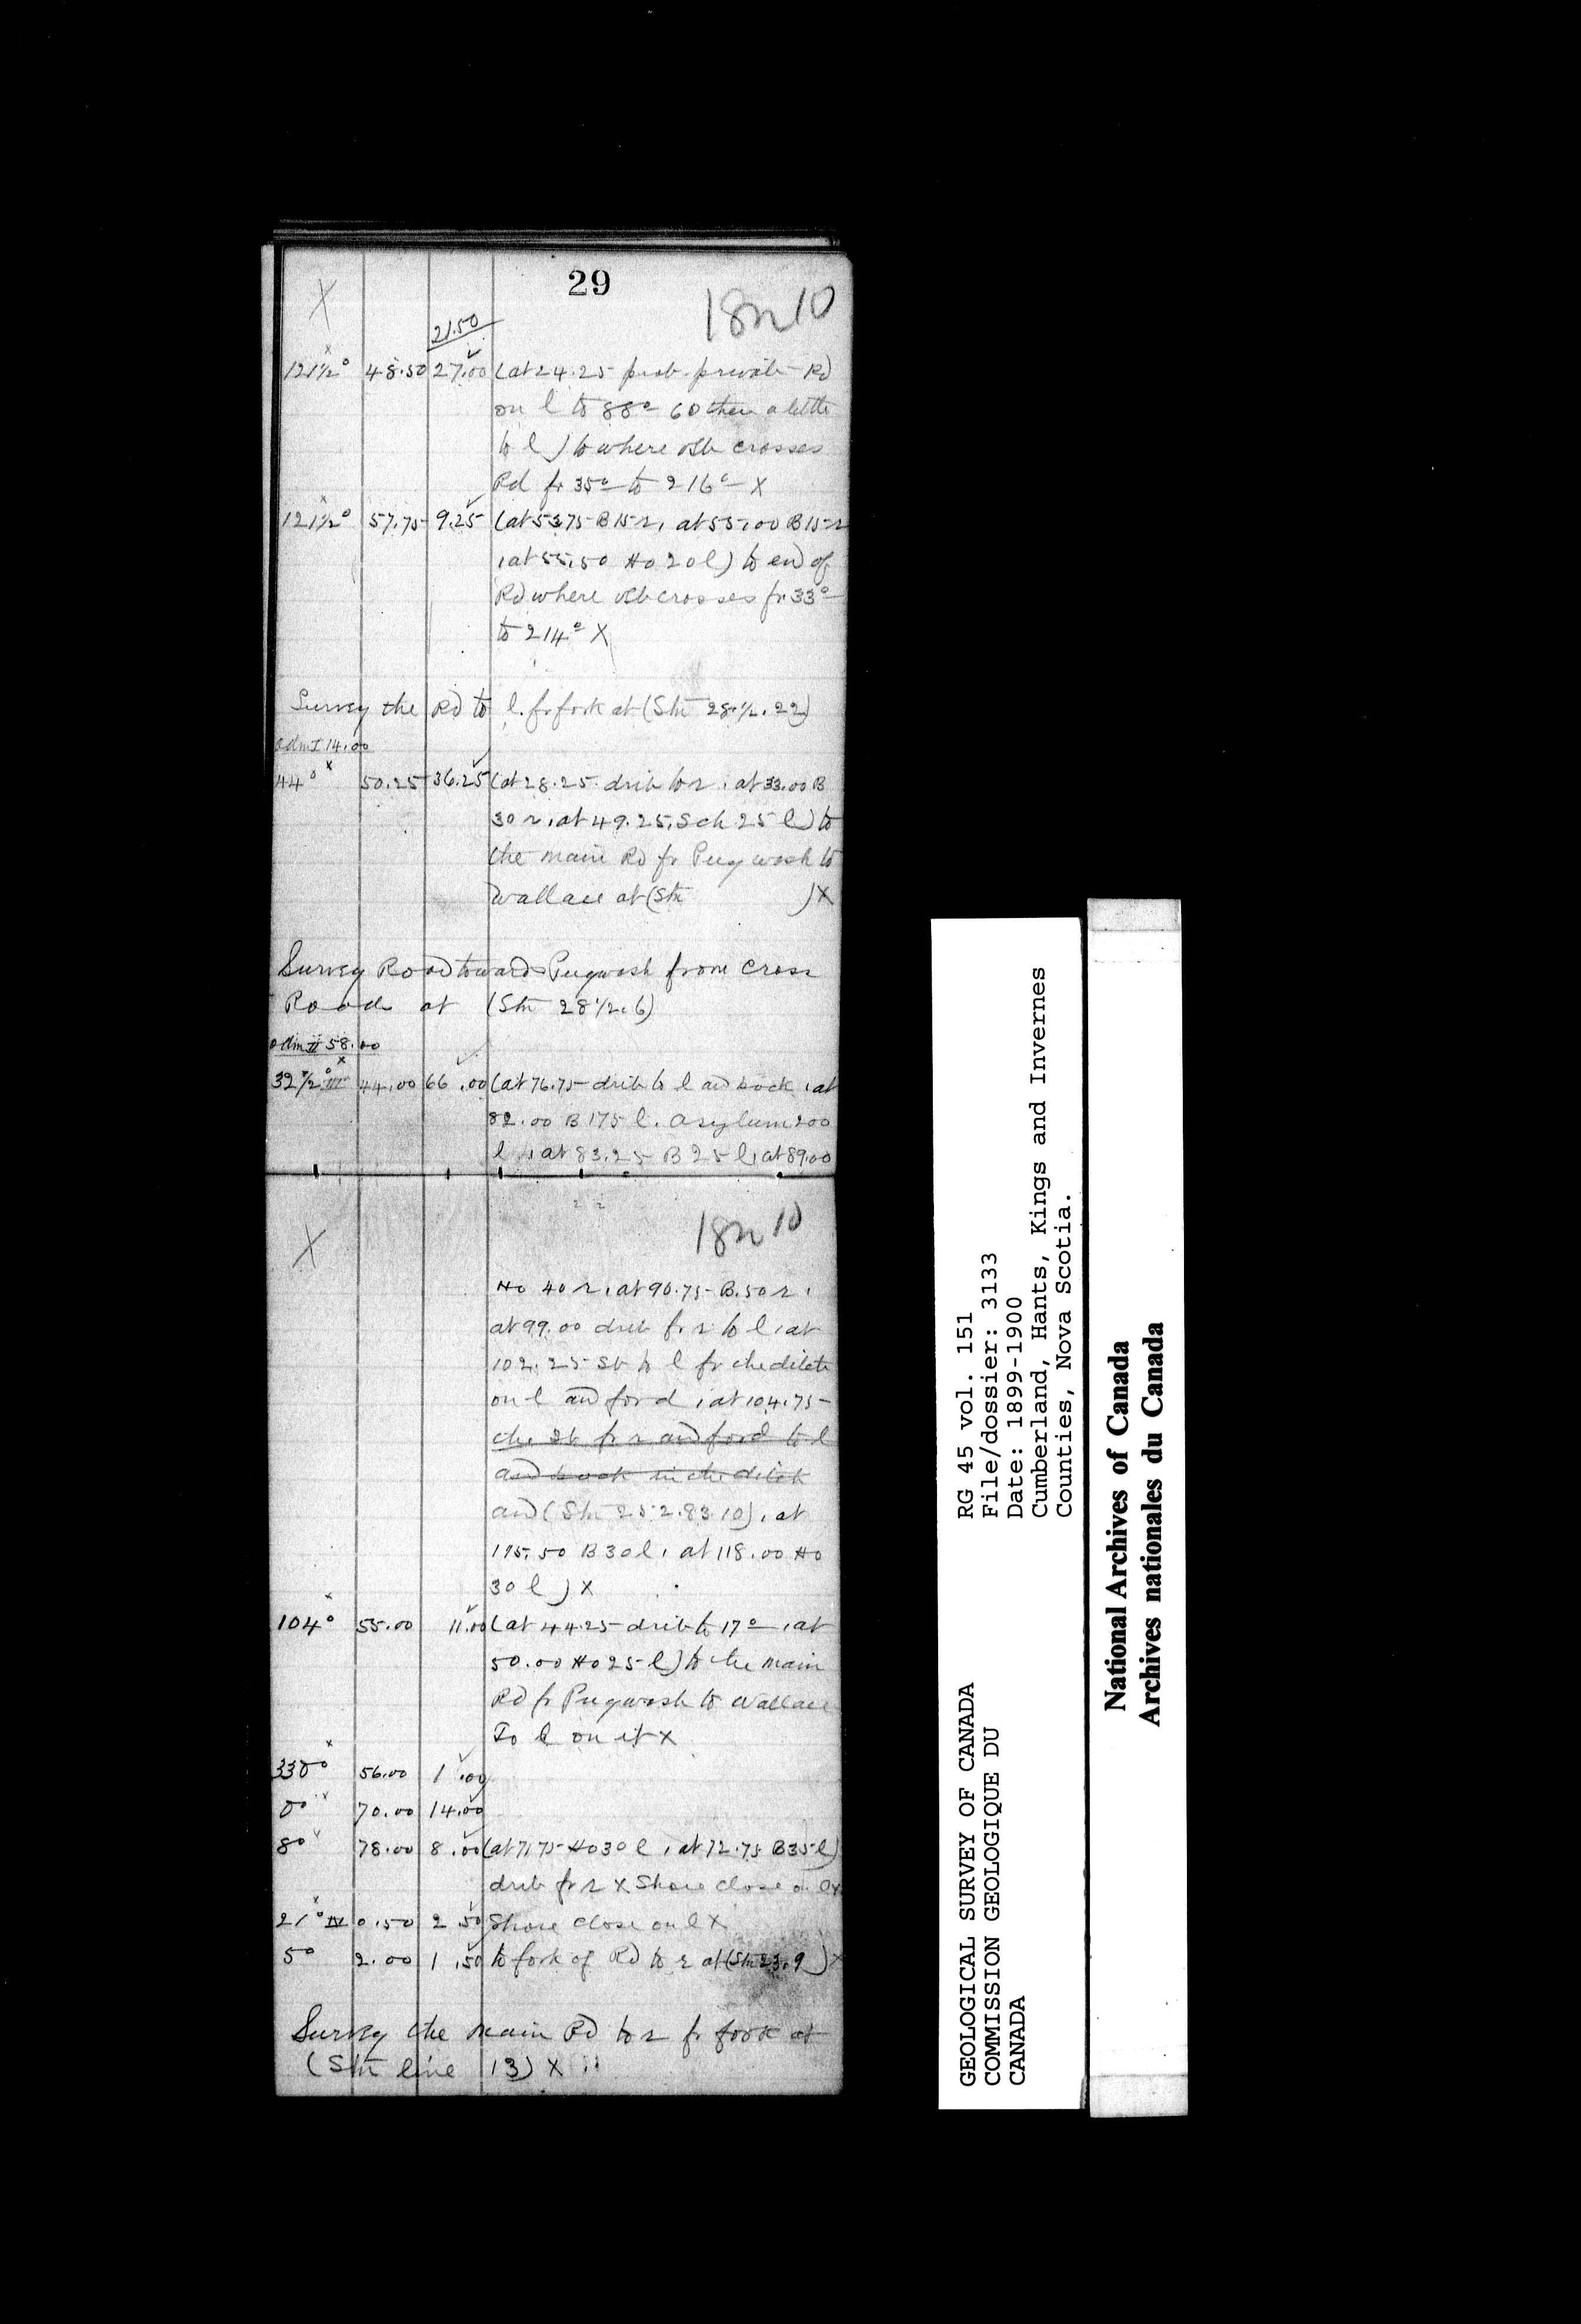 29
X
18n10
21.50
121½° 48.50 27.00 (at 24.25 prob. private Rd
on l to 88° 60 then a little
to l) to where vSb crosses
Rd fr 35° to 216° X
121½° 57.75 9.25 (at 53.75 B 15 r, at 55.00 B 15 r
, at 55.50 Ho 20 l) to end of
Rd where vSb crosses fr 33°
to 214° X
Survey the Rd to l. fr fork at (Stn 28.½.22)
odm I 14.00
44° 50.25 36.25 (at 28.25 drib to r, at 33.00 B
30 r, at 49.25, Sch 25 l) to
the main Rd fr Pugwash to
Wallace at (Stn ) X
Survey Road towards Pugwash from Cross
Roads at (Stn 28½.6)
odm II 58.00
32½° III 44.00 66.00 (at 76.75 drib to l and back, at
82.00 B 175 l. Asylum 200
l, at 83.25 B 25 l, at 89.00
X
18n10
Ho 40 r, at 90.75 B. 50 r,
at 99.00 drib fr r to l, at
102.25 Sb to l fr the ditch
on l and ford, at 104.75
the Sb fr r and ford to l
and back in the ditch
and (Stn 252.83.10), at
115.50 B 30 l, at 118.00 Ho
30 l) X
104° 55.00 11.00 (at 44.25 drib to 17°, at
50.00 Ho 25 l) to the main
Rd fr Pugwash to Wallace
To l on it X
338° 56.00 1.00
8° 70.00 14.00
8° 78.00 8.00 (at 71.75 Ho 30 l, at 72.75 B 35 l)
drib fr r X Shore close on l X
21° IV 0.50 2.50 Shore close on l X
5° 2.00 1.50 to fork of Rd to r at (Stn 23.9) X
Survey the main Rd to r fr fork at
(Stn line 13) X
GEOLOGICAL SURVEY OF CANADA
COMMISSION GEOLOGIQUE DU
CANADA
RG 45 vol. 151
File/dossier: 3133
Date: 1899-1900
Cumberland, Hants, Kings and Invernes
Counties, Nova Scotia.
National Archives of Canada
Archives nationales du Canada